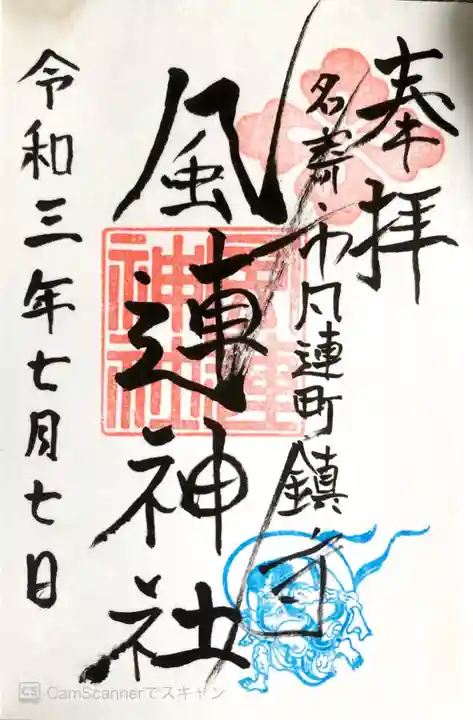 奉拝
名寄市風連町鎮守
風連神社
令和三年七月七日
風連
神社
CS CamScannerでスキャン